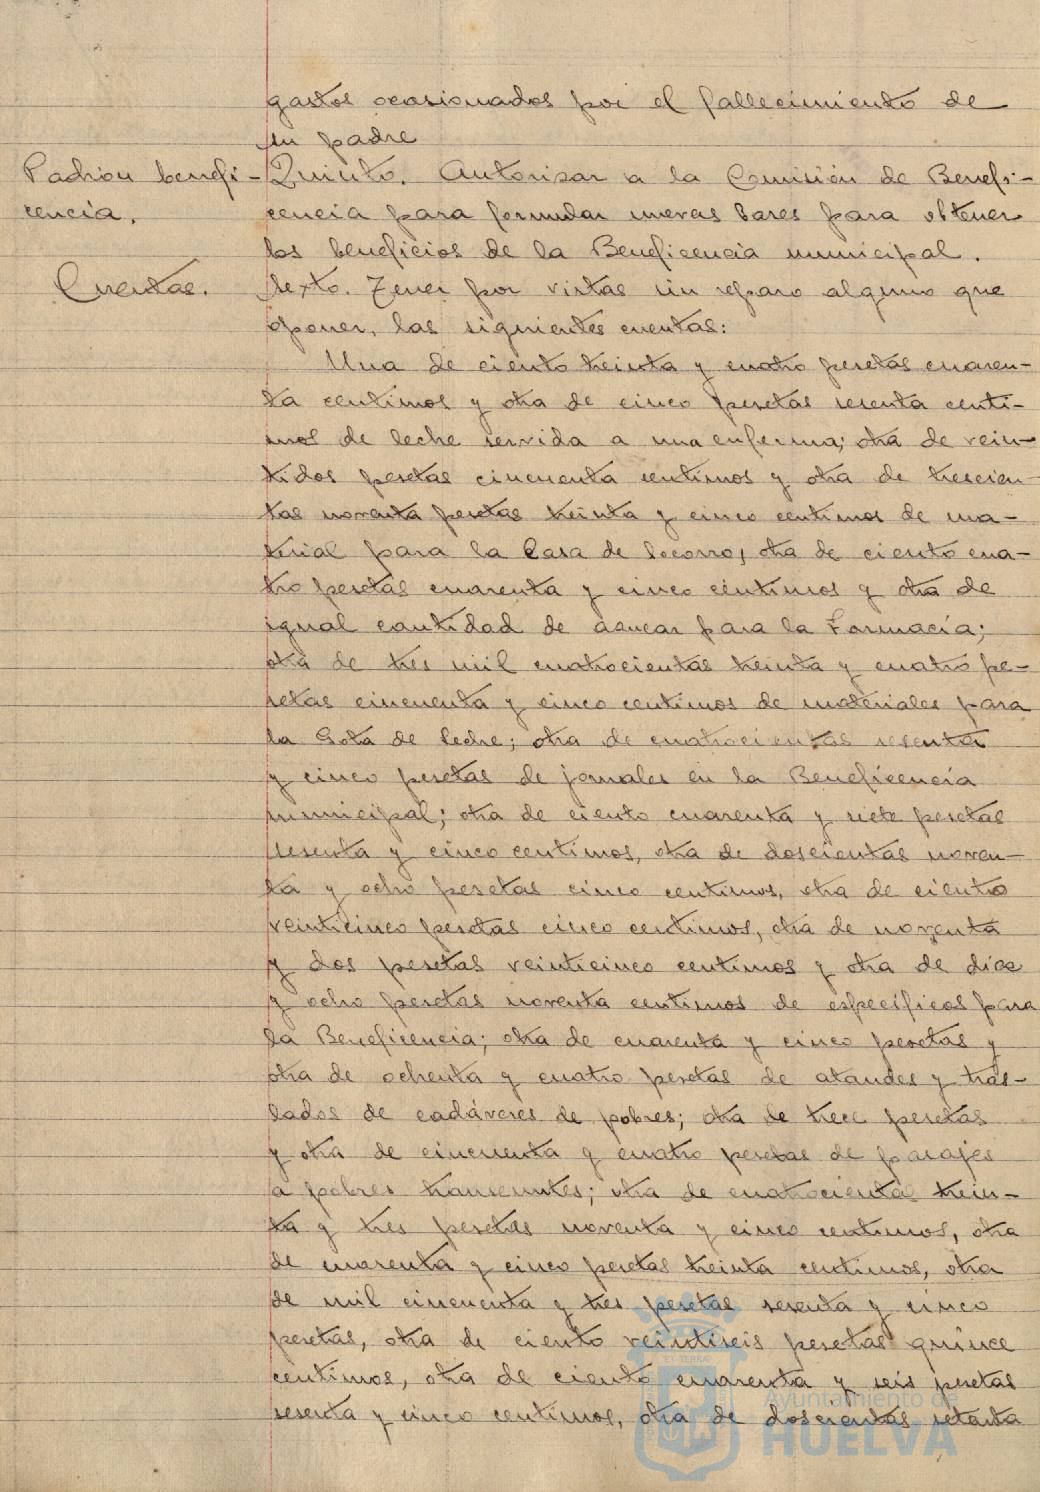 gastos ocasionados por el fallecimiento de
su padre
Padron benefi-
cencia.
Quinto. Autorizar a la Comisión de Benefi-
cencia para formular nuevas bases para obtener
los beneficios de la Beneficencia municipal.
Cuentas.
Sexto. Tener por vistas sin reparo alguno que
oponer, las siguientes cuentas:
Una de ciento treinta y cuatro pesetas cuaren-
ta centimos y otra de cinco pesetas sesenta centi-
mos de leche servida a una enferma; otra de vein-
tidos pesetas cincuenta centimos y otra de trescien-
tas noventa pesetas treinta y cinco centimos de ma-
terial para la Casa de Socorro, otra de ciento cua-
tro pesetas cuarenta y cinco centimos y otra de
igual cantidad de azucar para la Farmacia;
otra de tres mil cuatrocientas treinta y cuatro pe-
setas cincuenta y cinco centimos de materiales para
la Gota de leche; otra de cuatrocientas sesenta
y cinco pesetas de jornales en la Beneficencia
municipal; otra de ciento cuarenta y siete pesetas
sesenta y cinco centimos, otra de doscientas noven-
ta y ocho pesetas cinco centimos, otra de ciento
veinticinco pesetas cinco centimos, otra de noventa
y dos pesetas veinticinco centimos y otra de diez
y ocho pesetas noventa centimos de específicos para
la Beneficencia; otra de cuarenta y cinco pesetas y
otra de ochenta y cuatro pesetas de ataudes y tras-
lados de cadáveres de pobres; otra de trece pesetas
y otra de cincuenta y cuatro pesetas de pasajes
a pobres transeuntes; otra de cuatrocientas trein-
ta y tres pesetas noventa y cinco centimos, otra
de cuarenta y cinco pesetas treinta centimos, otra
de mil cincuenta y tres pesetas sesenta y cinco
pesetas, otra de ciento veintiseis pesetas quince
centimos, otra de ciento cuarenta y seis pesetas
sesenta y cinco centimos, otra de doscientas setenta
Ayuntamiento de
HUELVA